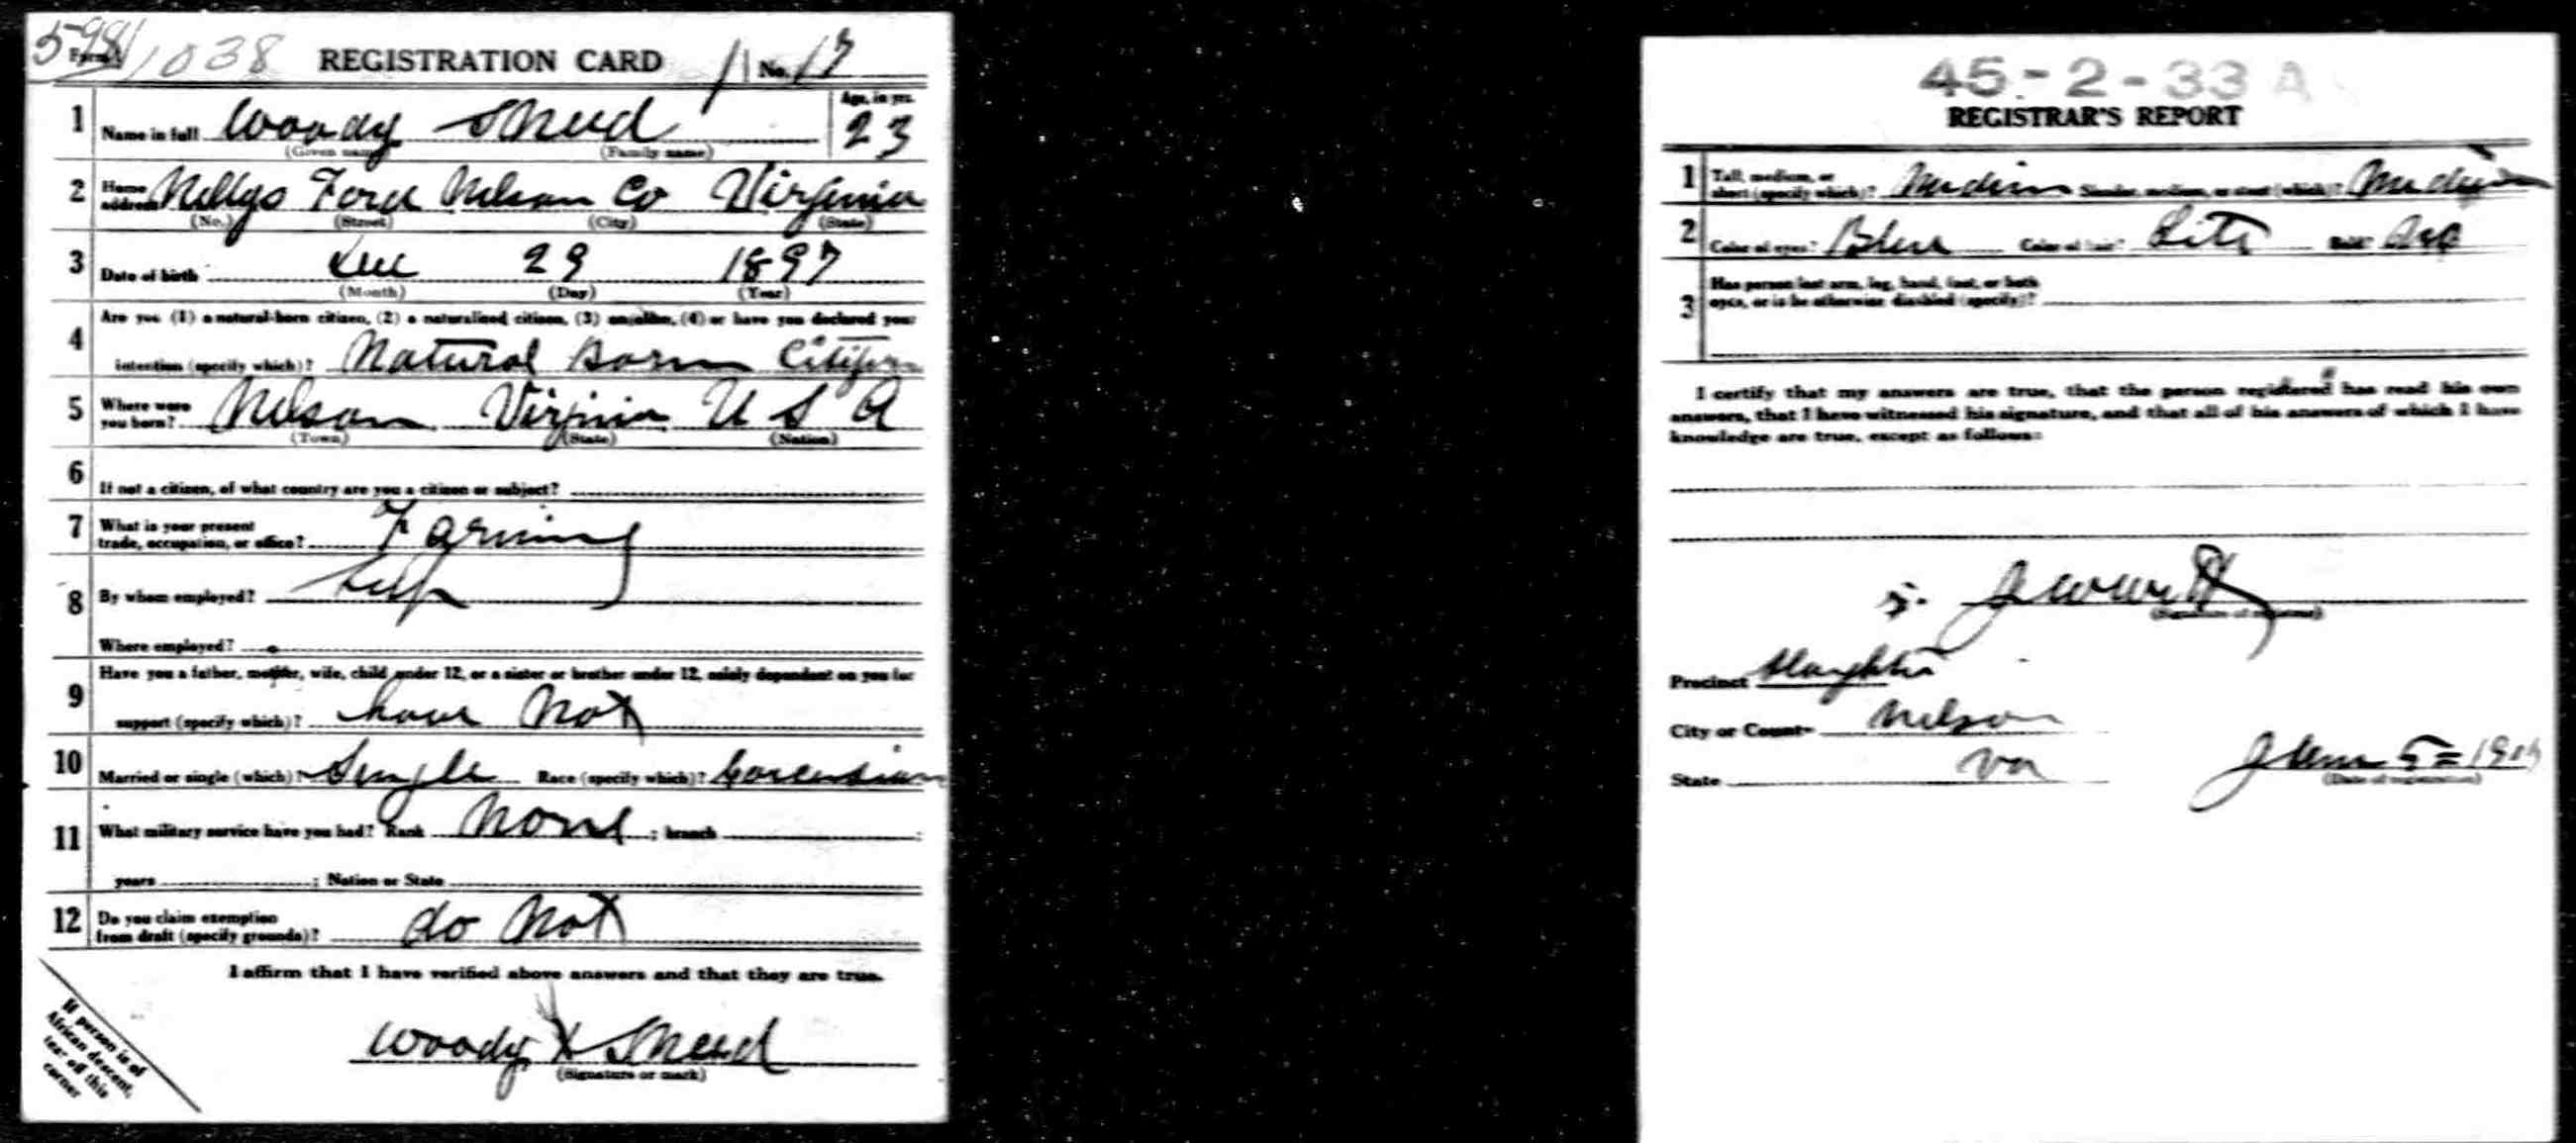 598 1038 REGISTRATION CARD No. 17
Form 1
1 Name in full Woody Sneed Age, in yrs. 23
(Given name) (Family name)
2 Home address Nellys Ford Nelson Co Virginia
(No.) (Street) (City) (State)
3 Date of birth Dec 29 1897
(Month) (Day) (Year)
4 Are you (1) a natural-born citizen, (2) a naturalized citizen, (3) an alien, (4) or have you declared your
intention (specify which)? Natural Born Citizen
5 Where were you born? Nelson Virginia U S A
(Town) (State) (Nation)
6 If not a citizen, of what country are you a citizen or subject?
7 What is your present trade, occupation, or office? Farming
8 By whom employed? Self
Where employed?
9 Have you a father, mother, wife, child under 12, or a sister or brother under 12, solely dependent on you for
support (specify which)? have not
10 Married or single (which)? Single Race (specify which)?
11 What military service have you had? Rank None ; branch ;
years ; Nation or State
12 Do you claim exemption from draft (specify grounds)? do not
I affirm that I have verified above answers and that they are true.
Woody X Sneed
(Signature or mark)
If person is of
African descent,
tear off this
corner
45-2-33 A
REGISTRAR'S REPORT
1 Tall, medium, or short (specify which)? Medium Slender, medium, or stout (which)? Medium
2 Color of eyes? Blue Color of hair? Lite Bald? No
3 Has person lost arm, leg, hand, foot, or both
eyes, or is he otherwise disabled (specify)?
I certify that my answers are true, that the person registered has read his own
answers, that I have witnessed his signature, and that all of his answers of which I have
knowledge are true, except as follows:
(Signature of registrar)
Precinct
City or County Nelson
State Va June 5 = 1917
(Date of registration)